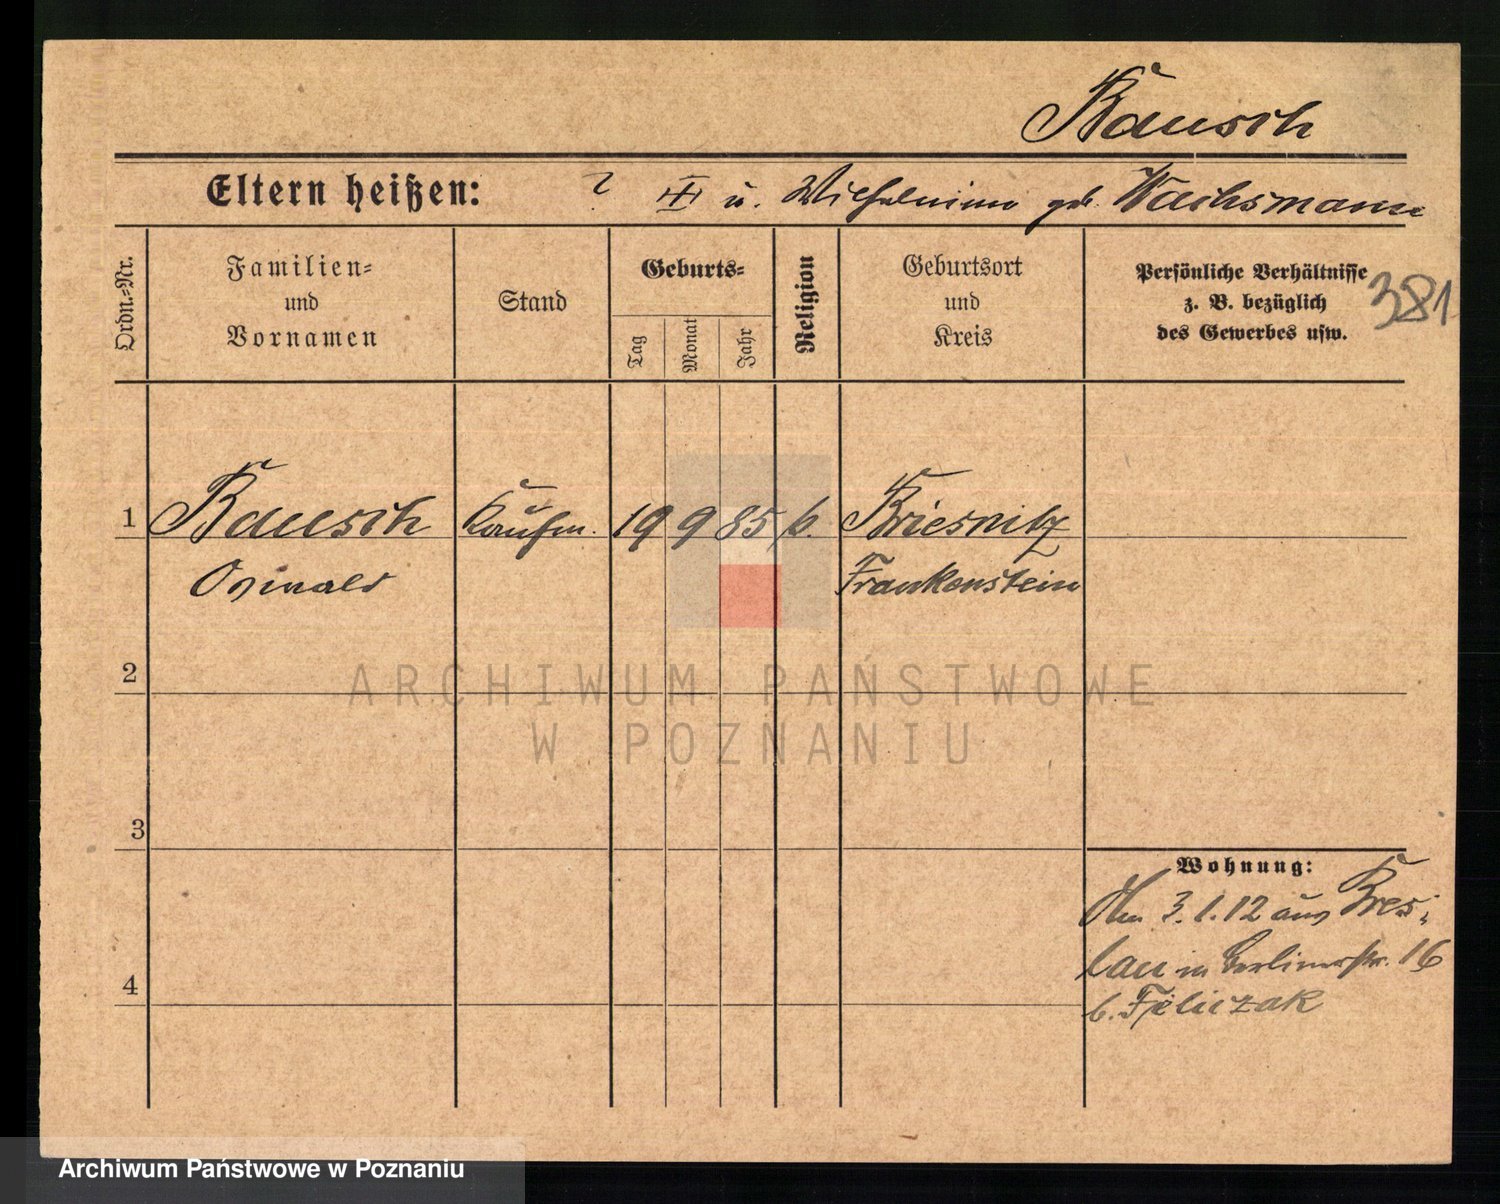 Bausch
Eltern heißen: ? III u. Wilhelmine geb. Wachsmann
Ordn.-Nr.
Familien- und Vornamen
Stand
Geburts-
Tag
Monat
Jahr
Religion
Geburtsort und Kreis
Persönliche Verhältnisse
z. B. bezüglich
des Gewerbes usw.
381
1 Bausch Kaufm. 19 9 85 k. Briesnitz
Oswald Frankenstein
2
3
4
Wohnung:
Am 3.1.12 aus Bres-
lau in Berlinerstr. 16
b. Feliczak
ARCHIWUM PAŃSTWOWE
W POZNANIU
Archiwum Państwowe w Poznaniu